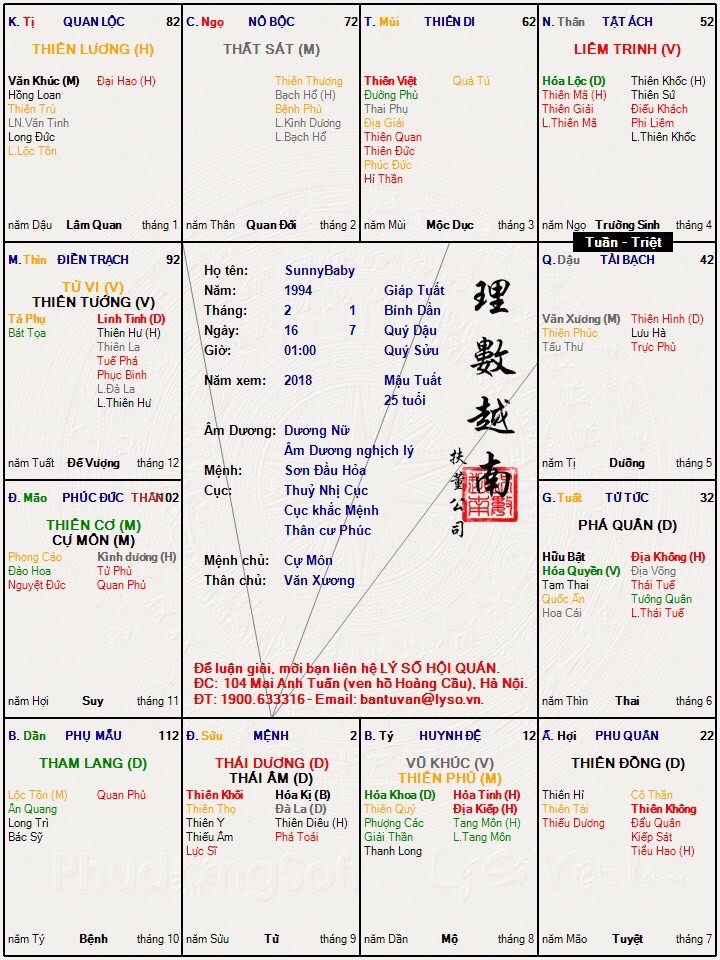 K. Tị QUAN LỘC 82
THIÊN LƯƠNG (H)
Văn Khúc (M) Đại Hao (H)
Hồng Loan
Thiên Trù
LN.Văn Tinh
Long Đức
L.Lộc Tồn
năm Dậu Lâm Quan tháng 1
C. Ngọ NÔ BỘC 72
THẤT SÁT (M)
Thiên Thương
Bạch Hổ (H)
Bệnh Phù
L.Kình Dương
L.Bạch Hổ
năm Thân Quan Đới tháng 2
T. Mùi THIÊN DI 62
Thiên Việt Quả Tú
Đường Phù
Thai Phụ
Địa Giải
Thiên Quan
Thiên Đức
Phúc Đức
Hỉ Thần
năm Mùi Mộc Dục tháng 3
N. Thân TẬT ÁCH 52
LIÊM TRINH (V)
Hóa Lộc (D) Thiên Khốc (H)
Thiên Mã (H) Thiên Sứ
Thiên Giải Điếu Khách
L.Thiên Mã Phi Liêm
L.Thiên Khốc
năm Ngọ Trường Sinh tháng 4
Tuần - Triệt
M. Thìn ĐIỀN TRẠCH 92
TỬ VI (V)
THIÊN TƯỚNG (V)
Tả Phụ Linh Tinh (D)
Bát Tọa Thiên Hư (H)
Thiên La
Tuế Phá
Phục Binh
L.Đà La
L.Thiên Hư
năm Tuất Đế Vượng tháng 12
Họ tên: SunnyBaby
Năm: 1994 Giáp Tuất
Tháng: 2 1 Bính Dần
Ngày: 16 7 Quý Dậu
Giờ: 01:00 Quý Sửu
Năm xem: 2018 Mậu Tuất
25 tuổi
Âm Dương: Dương Nữ
Âm Dương nghịch lý
Mệnh: Sơn Đầu Hỏa
Cục: Thuỷ Nhị Cục
Cục khắc Mệnh
Thân cư Phúc
Mệnh chủ: Cự Môn
Thân chủ: Văn Xương
理數越南
扶董公司
Để luận giải, mời bạn liên hệ LÝ SỐ HỘI QUÁN.
ĐC: 104 Mai Anh Tuấn (ven hồ Hoàng Cầu), Hà Nội.
ĐT: 1900.633316 - Email: bantuvan@lyso.vn.
Q. Dậu TÀI BẠCH 42
Văn Xương (M) Thiên Hình (D)
Thiên Phúc Lưu Hà
Tấu Thư Trực Phù
năm Tị Dưỡng tháng 5
Đ. Mão PHÚC ĐỨC THÂN 102
THIÊN CƠ (M)
CỰ MÔN (M)
Phong Cáo Kình dương (H)
Đào Hoa Tử Phù
Nguyệt Đức Quan Phủ
năm Hợi Suy tháng 11
G. Tuất TỬ TỨC 32
PHÁ QUÂN (D)
Hữu Bật Địa Không (H)
Hóa Quyền (V) Địa Võng
Tam Thai Thái Tuế
Quốc Ấn Tướng Quân
Hoa Cái L.Thái Tuế
năm Thìn Thai tháng 6
B. Dần PHỤ MẪU 112
THAM LANG (D)
Lộc Tồn (M) Quan Phù
Ân Quang
Long Trì
Bác Sỹ
năm Tý Bệnh tháng 10
Đ. Sửu MỆNH 2
THÁI DƯƠNG (D)
THÁI ÂM (D)
Thiên Khôi Hóa Kị (B)
Thiên Thọ Đà La (D)
Thiên Y Thiên Diêu (H)
Thiếu Âm Phá Toái
Lực Sĩ
năm Sửu Tử tháng 9
B. Tý HUYNH ĐỆ 12
VŨ KHÚC (V)
THIÊN PHỦ (M)
Hóa Khoa (D) Hỏa Tinh (H)
Thiên Quý Địa Kiếp (H)
Phượng Các Tang Môn (H)
Giải Thần L.Tang Môn
Thanh Long
năm Dần Mộ tháng 8
Ấ. Hợi PHU QUÂN 22
THIÊN ĐỒNG (D)
Thiên Hỉ Cô Thần
Thiên Tài Thiên Không
Thiếu Dương Đẩu Quân
Kiếp Sát
Tiểu Hao (H)
năm Mão Tuyệt tháng 7